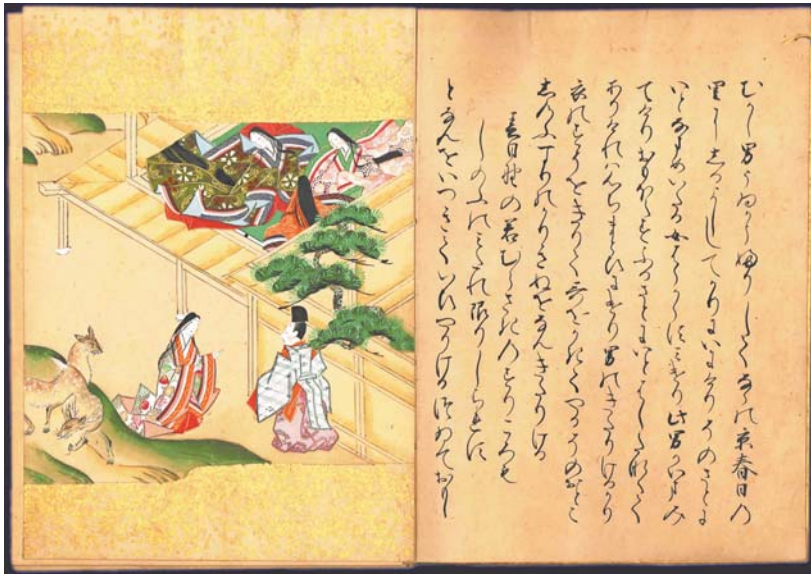 むかし男うゐかうふりしてならの京春日の
里にしるよしゝてかりにいにけりそのさとに
いとなまめいたる女はらからすみけり此男かいまみ
てけりおもほえすふるさとにいとはしたなくて
ありけれは心ちまとひにけり男のきたりけるかり
衣のすそをきりて哥をかきてやるそのおとこ
しのふすりのかりきぬをなんきたりける
春日野の若むらさきのすりころも
しのふのみたれ限りしられす
となんをいつきていひやりけるつゐておもし